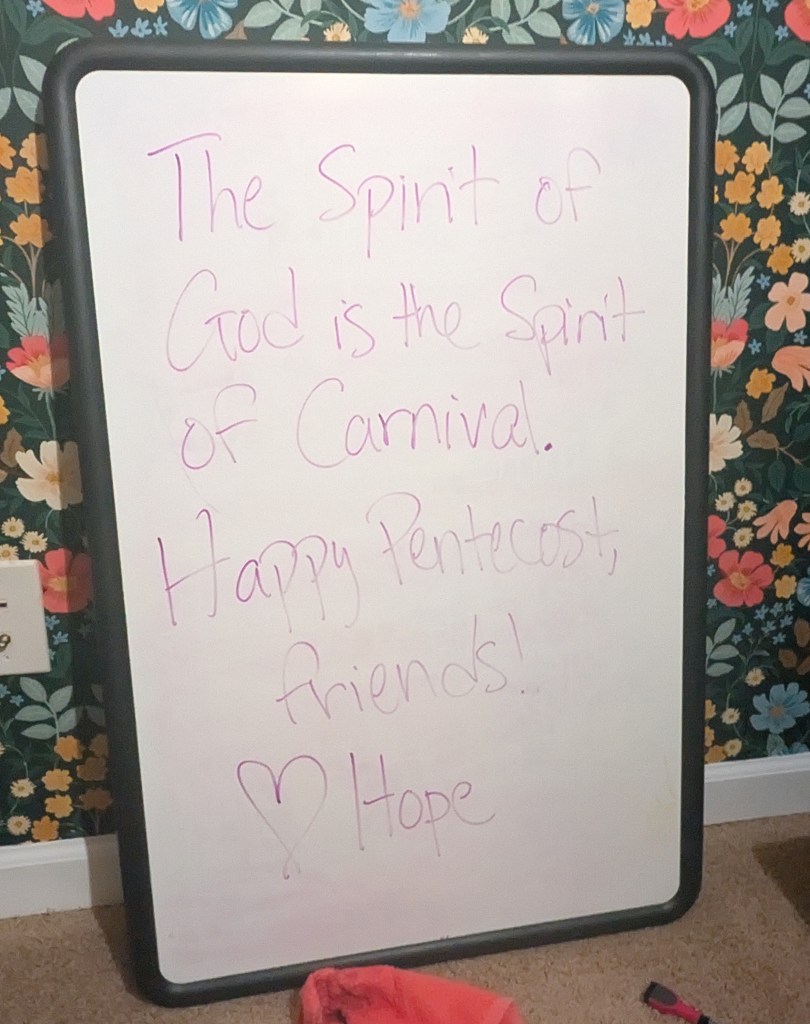 The Spirit of
God is the Spirit
of Carnival.
Happy Pentecost,
friends!
♡ Hope
9